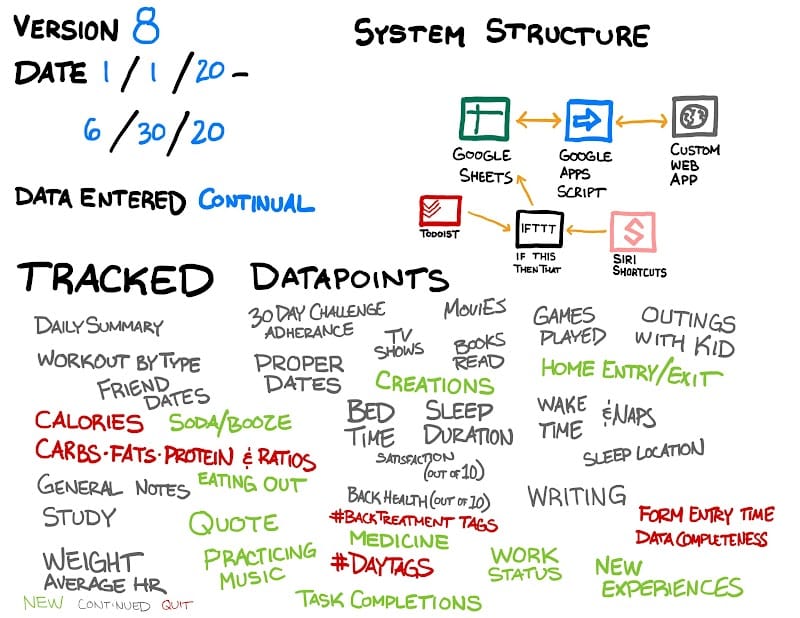 VERSION 8
SYSTEM STRUCTURE
DATE 1/1/20 -
6/30/20
DATA ENTERED CONTINUAL
GOOGLE SHEETS
GOOGLE APPS SCRIPT
CUSTOM WEB APP
TODOIST
IFTTT
IF THIS THEN THAT
SIRI SHORTCUTS
TRACKED DATAPOINTS
DAILY SUMMARY
30 DAY CHALLENGE
ADHERANCE
MOVIES
GAMES
PLAYED
OUTINGS
WITH KID
WORKOUT BY TYPE
PROPER
DATES
TV
SHOWS
BOOKS
READ
HOME ENTRY/EXIT
FRIEND
DATES
CREATIONS
CALORIES
SODA/BOOZE
BED
TIME
SLEEP
DURATION
WAKE
TIME
& NAPS
CARBS·FATS·PROTEIN & RATIOS
SATISFACTION
(OUT OF 10)
SLEEP LOCATION
GENERAL NOTES
EATING OUT
BACK HEALTH (OUT OF 10)
WRITING
STUDY
QUOTE
#BACKTREATMENT TAGS
FORM ENTRY TIME
DATA COMPLETENESS
MEDICINE
WEIGHT
AVERAGE HR
PRACTICING
MUSIC
#DAYTAGS
WORK
STATUS
NEW
EXPERIENCES
NEW CONTINUED QUIT
TASK COMPLETIONS